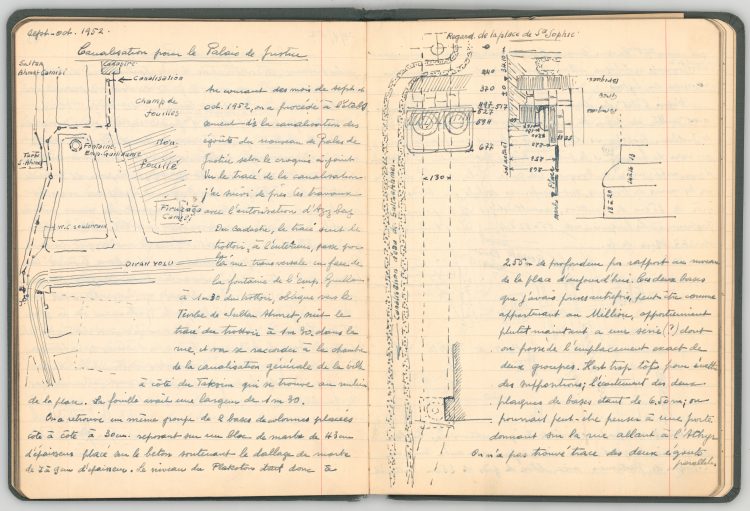 Sept.-oct. 1952.
Canalisation pour le Palais de Justice
Sultan
Ahmet Camisi
Cadastre
Canalisation
Champ de
fouilles
Non
fouillé
Fontaine
Emp. Guillaume
Turbe
S. Ahmet
W.C. souterrain
Firuzağa
Camisi
DIVAN YOLU
Au courant des mois de sept. et
oct. 1952, on a procédé à l'établ
cement de la canalisation des
égoûts du nouveau Palais de
Justice selon le croquis ci-joint
Vu le tracé de la canalisation
j'ai suivi de près les travaux
avec l'autorisation d'Aziz bey
Du Cadastre, le tracé suit le
trottoir, à l'intérieur, passe par
la rue transversale en face de
la fontaine de l'emp. Guillaume
à 1m30 du trottoir, oblique vers le
Turbe de Sultan Ahmet, suit le
tracé du trottoir à 1m30 dans la
rue, et va se raccorder à la chambre
de la canalisation générale de la ville
à côté du Taksim qui se trouve au milieu
de la place. La fouille avait une largeur de 1m30.
On a retrouvé un même groupe de 2 bases de colonnes placées
côte à côte à 30cm. reposant sur un bloc de marbre de 43cm
d'épaisseur placé sur le béton soutenant le dallage de marbre
d'épaisseur. Le niveau du Plakoton était donc à
Regard de la place de Ste Sophie
0
240
370
497
527
594
677
130
517
2.55 m de profondeur par rapport au niveau
de la place d'aujourd'hui. Ces deux bases
que j'avais prises autrefois, peut-être comme
appartenant au Millions, appartiennent
plutôt maintenant à une série (?) dont
on possède l'emplacement exact de
deux groupes. Il est trop tôt pour émettre
des suppositions; l'écartement des deux
plaques de bases étant de 6.50 m; on
pourrait peut-être penser à une porte
donnant sur la rue allant à l'Athyr
On n'a pas trouvé trace des deux égouts
parallèles.